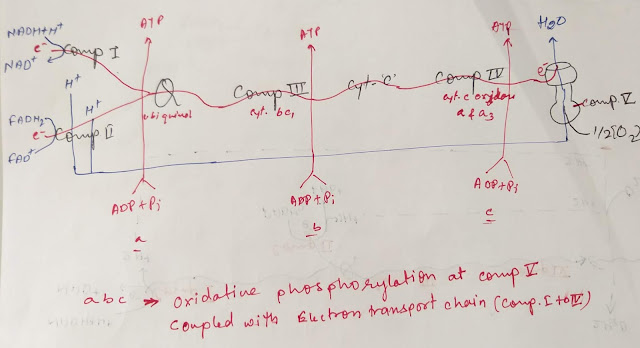 ATP ATP ATP H₂O
NADH+H⁺
e⁻ Comp I
NAD⁺
H⁺
H⁺
Q
ubiquinol
Comp III
cyt. bc₁
cyt-'c'
Comp IV
cyt. c oxidase
a & a₃
e⁻
comp. V
1/2[O₂]
FADH₂
e⁻ Comp II
FAD⁺
ADP+Pi ADP+Pi ADP+Pi
a b c
abc ⇒ Oxidative phosphorylation at comp V
Coupled with Electron transport chain (Comp. I to IV)